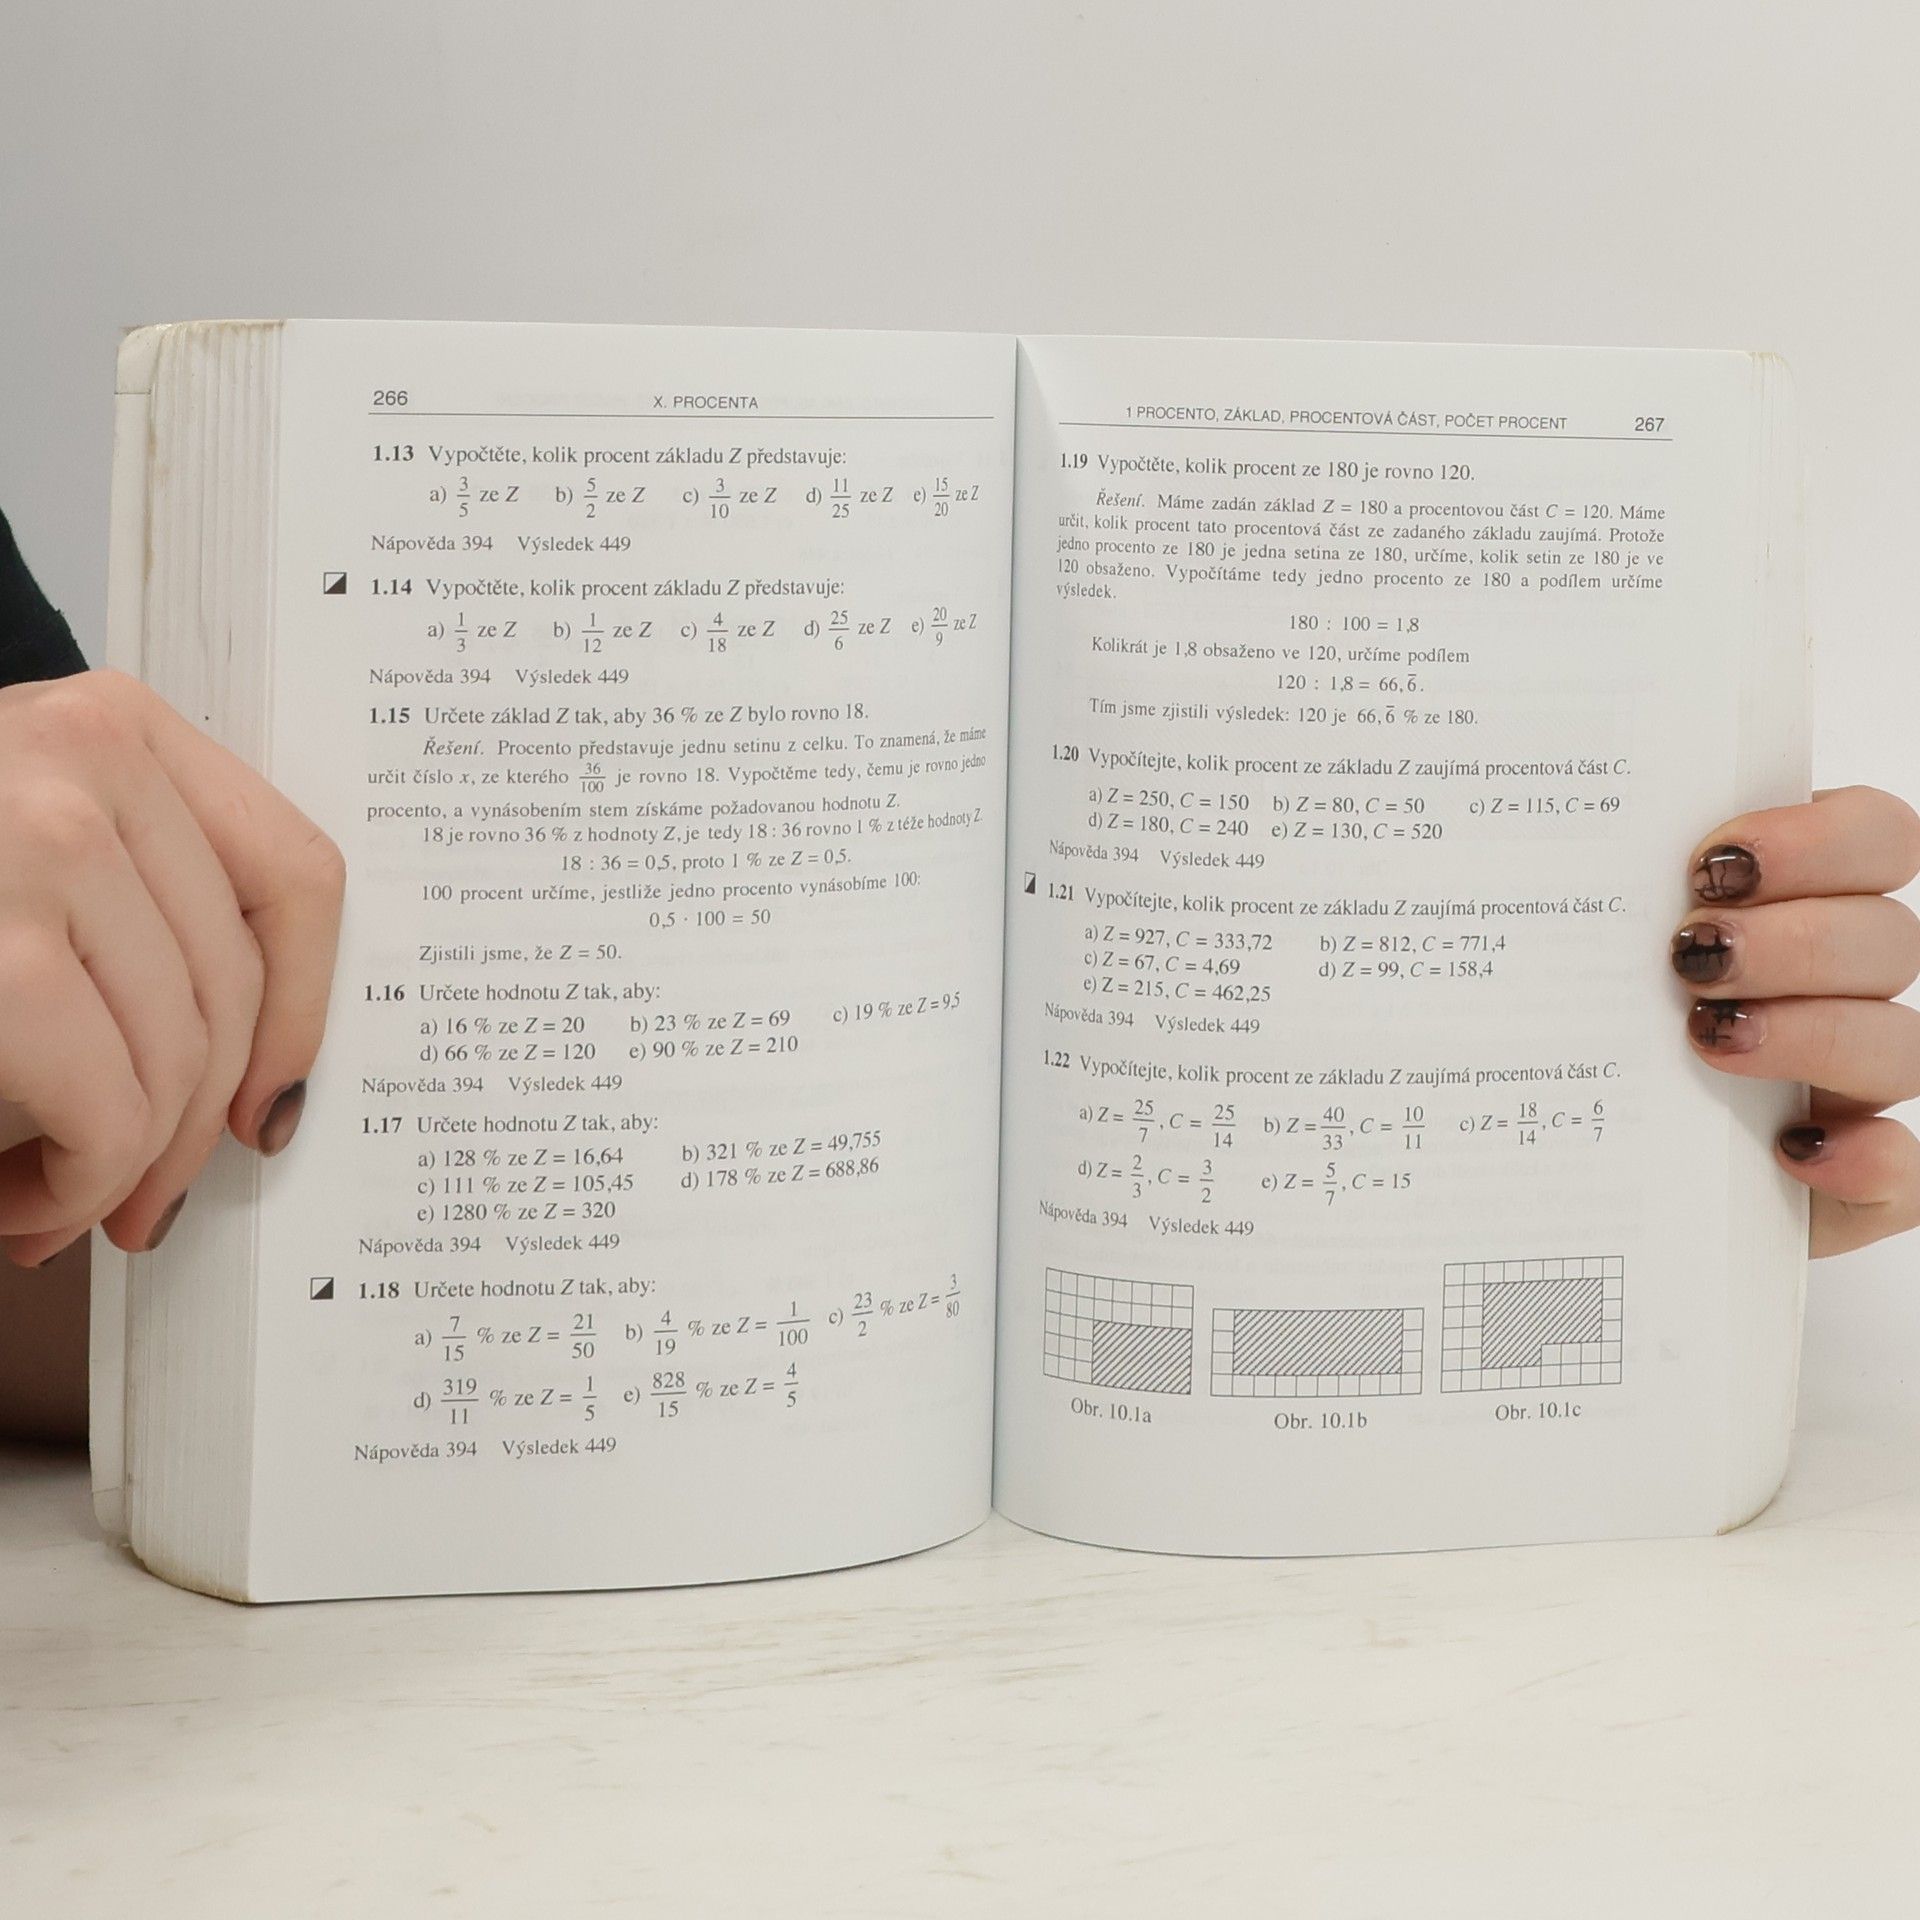 266 X. PROCENTA
1.13 Vypočtěte, kolik procent základu Z představuje:
a) 3/5 ze Z b) 5/2 ze Z c) 3/10 ze Z d) 11/25 ze Z e) 15/20 ze Z
Nápověda 394 Výsledek 449
1.14 Vypočtěte, kolik procent základu Z představuje:
a) 1/3 ze Z b) 1/12 ze Z c) 4/18 ze Z d) 25/6 ze Z e) 20/9 ze Z
Nápověda 394 Výsledek 449
1.15 Určete základ Z tak, aby 36 % ze Z bylo rovno 18.
Řešení. Procento představuje jednu setinu z celku. To znamená, že máme
určit číslo x, ze kterého 36/100 je rovno 18. Vypočtěme tedy, čemu je rovno jedno
procento, a vynásobením stem získáme požadovanou hodnotu Z.
18 je rovno 36 % z hodnoty Z, je tedy 18 : 36 rovno 1 % z téže hodnoty Z.
18 : 36 = 0,5, proto 1 % ze Z = 0,5.
100 procent určíme, jestliže jedno procento vynásobíme 100:
0,5 · 100 = 50
Zjistili jsme, že Z = 50.
1.16 Určete hodnotu Z tak, aby:
a) 16 % ze Z = 20 b) 23 % ze Z = 69 c) 19 % ze Z = 9,5
d) 66 % ze Z = 120 e) 90 % ze Z = 210
Nápověda 394 Výsledek 449
1.17 Určete hodnotu Z tak, aby:
a) 128 % ze Z = 16,64 b) 321 % ze Z = 49,755
c) 111 % ze Z = 105,45 d) 178 % ze Z = 688,86
e) 1280 % ze Z = 320
Nápověda 394 Výsledek 449
1.18 Určete hodnotu Z tak, aby:
a) 7/15 % ze Z = 21/50 b) 4/19 % ze Z = 1/100 c) 23/2 % ze Z = 3/80
d) 319/11 % ze Z = 1/5 e) 828/15 % ze Z = 4/5
Nápověda 394 Výsledek 449
1 PROCENTO, ZÁKLAD, PROCENTOVÁ ČÁST, POČET PROCENT 267
1.19 Vypočtěte, kolik procent ze 180 je rovno 120.
Řešení. Máme zadán základ Z = 180 a procentovou část C = 120. Máme
určit, kolik procent tato procentová část ze zadaného základu zaujímá. Protože
jedno procento ze 180 je jedna setina ze 180, určíme, kolik setin ze 180 je ve
120 obsaženo. Vypočítáme tedy jedno procento ze 180 a podílem určíme
výsledek.
180 : 100 = 1,8
Kolikrát je 1,8 obsaženo ve 120, určíme podílem
120 : 1,8 = 66,6̅.
Tím jsme zjistili výsledek: 120 je 66,6̅ % ze 180.
1.20 Vypočítejte, kolik procent ze základu Z zaujímá procentová část C.
a) Z = 250, C = 150 b) Z = 80, C = 50 c) Z = 115, C = 69
d) Z = 180, C = 240 e) Z = 130, C = 520
Nápověda 394 Výsledek 449
1.21 Vypočítejte, kolik procent ze základu Z zaujímá procentová část C.
a) Z = 927, C = 333,72 b) Z = 812, C = 771,4
c) Z = 67, C = 4,69 d) Z = 99, C = 158,4
e) Z = 215, C = 462,25
Nápověda 394 Výsledek 449
1.22 Vypočítejte, kolik procent ze základu Z zaujímá procentová část C.
a) Z = 25/7, C = 25/14 b) Z = 40/33, C = 10/11 c) Z = 18/14, C = 6/7
d) Z = 2/3, C = 3/2 e) Z = 5/7, C = 15
Nápověda 394 Výsledek 449
Obr. 10.1a Obr. 10.1b Obr. 10.1c